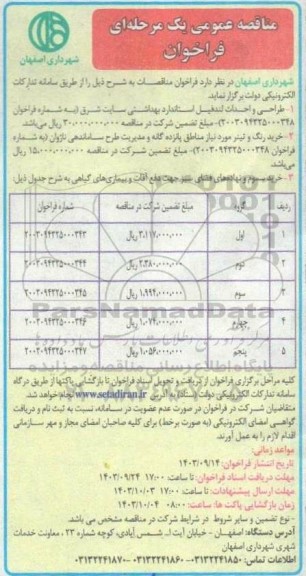 مناقصه عمومی یک مرحله‌ای
فراخوان
شهرداری اصفهان
شهرداری اصفهان در نظر دارد فراخوان مناقصات به شرح ذیل را از طریق سامانه تدارکات
الکترونیکی دولت برگزار نماید.
۱- طراحی و احداث لندفیل استاندارد بهداشتی سایت شرق (به شماره فراخوان
۲۰۰۳۰۹۴۳۲۵۰۰۰۳۴۲)- مبلغ تضمین شرکت در مناقصه ۳۰,۰۰۰,۰۰۰,۰۰۰ ریال می‌باشد.
۲- خرید رنگ و تینر مورد نیاز مناطق پانزده گانه و مدیریت طرح ساماندهی ناژوان (به شماره
فراخوان ۲۰۰۳۰۹۴۳۲۵۰۰۰۳۴۸)- مبلغ تضمین شرکت در مناقصه ۱۵,۰۰۰,۰۰۰,۰۰۰ ریال
می‌باشد.
۳- خرید سموم و نهاده‌های فضای سبز جهت دفع آفات و بیماری‌های گیاهی به شرح جدول ذیل
ردیف گروه مبلغ تضمین شرکت در مناقصه شماره فراخوان
۱ اول ۲,۱۱۷,۰۰۰,۰۰۰ ریال ۲۰۰۳۰۹۴۳۲۵۰۰۰۳۴۳
۲ دوم ۲,۳۸۰,۰۰۰,۰۰۰ ریال ۲۰۰۳۰۹۴۳۲۵۰۰۰۳۴۴
۳ سوم ۱,۹۹۴,۰۰۰,۰۰۰ ریال ۲۰۰۳۰۹۴۳۲۵۰۰۰۳۴۵
۴ چهارم ۱,۰۷۴,۰۰۰,۰۰۰ ریال ۲۰۰۳۰۹۴۳۲۵۰۰۰۳۴۶
۵ پنجم ۱,۰۵۶,۰۰۰,۰۰۰ ریال ۲۰۰۳۰۹۴۳۲۵۰۰۰۳۴۷
ParsNamadData
پایگاه اطلاع رسانی مناقصه و مزایده
کلیه مراحل برگزاری فراخوان از دریافت و تحویل اسناد فراخوان تا بازگشایی پاکتها از طریق درگاه
سامانه تدارکات الکترونیکی دولت (ستاد) به آدرس www.setadiran.ir انجام خواهد شد.
متقاضیان شرکت در فراخوان در صورت عدم عضویت در سامانه، نسبت به ثبت نام و دریافت
گواهی امضای الکترونیکی (به صورت برخط) برای کلیه صاحبان امضای مجاز و مهر سازمانی
اقدام لازم را به عمل آورند.
مواعد زمانی:
تاریخ انتشار فراخوان: ۱۴۰۳/۰۹/۱۴
مهلت دریافت اسناد فراخوان: تا ساعت ۱۷:۰۰ ۱۴۰۳/۰۹/۲۴
مهلت ارسال پیشنهادات: تا ساعت ۱۷:۰۰ ۱۴۰۳/۱۰/۰۳
زمان بازگشایی پاکت ها: ساعت: ۰۸:۰۰ ۱۴۰۳/۱۰/۰۴
- نوع تضمین و سایر شروط در شرایط شرکت در مناقصه مشخص می باشد.
آدرس دستگاه: اصفهان - خیابان آیت‌ا... شمس آبادی، کوچه شماره ۲۳ - معاونت خدمات
شهری شهرداری اصفهان
اطلاعات تماس: ۰۳۱۳۲۲۴۱۸۵۰-۰۳۱۳۲۲۴۱۸۶۰-۰۳۱۳۲۲۴۱۸۷۰